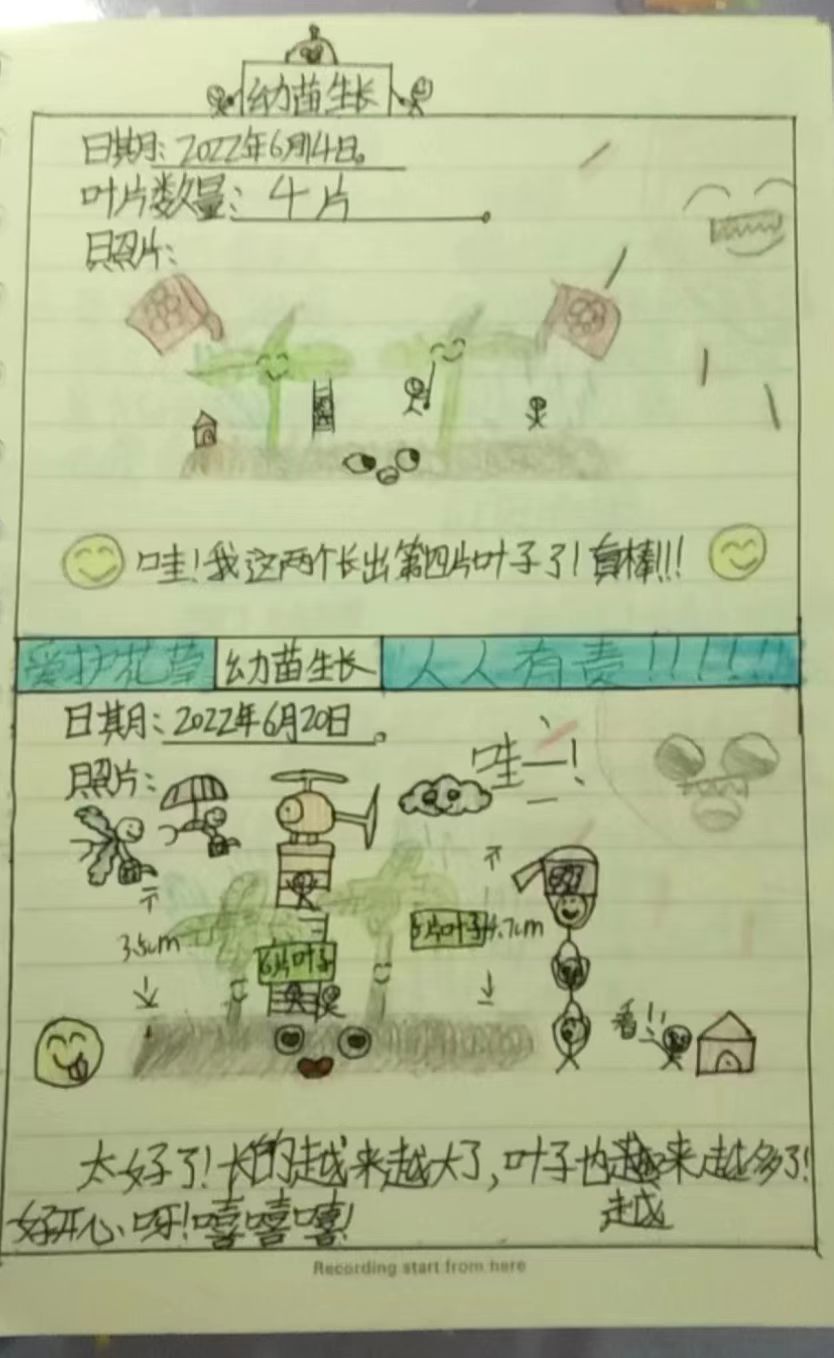 幼苗生长
日期:2022年6月14日。
叶片数量:4片。
照片:
哇!我这两个长出第四片叶子了!真棒!!!
爱护花草 幼苗生长 人人有责!!!!!!
日期:2022年6月20日。
照片:
哇一!
3.5cm
6片叶子
5片叶子
4.7cm
看!!
太好了!长的越来越大了,叶子也越来越多了!
越
好开心呀!嘻嘻嘻!
Recording start from here